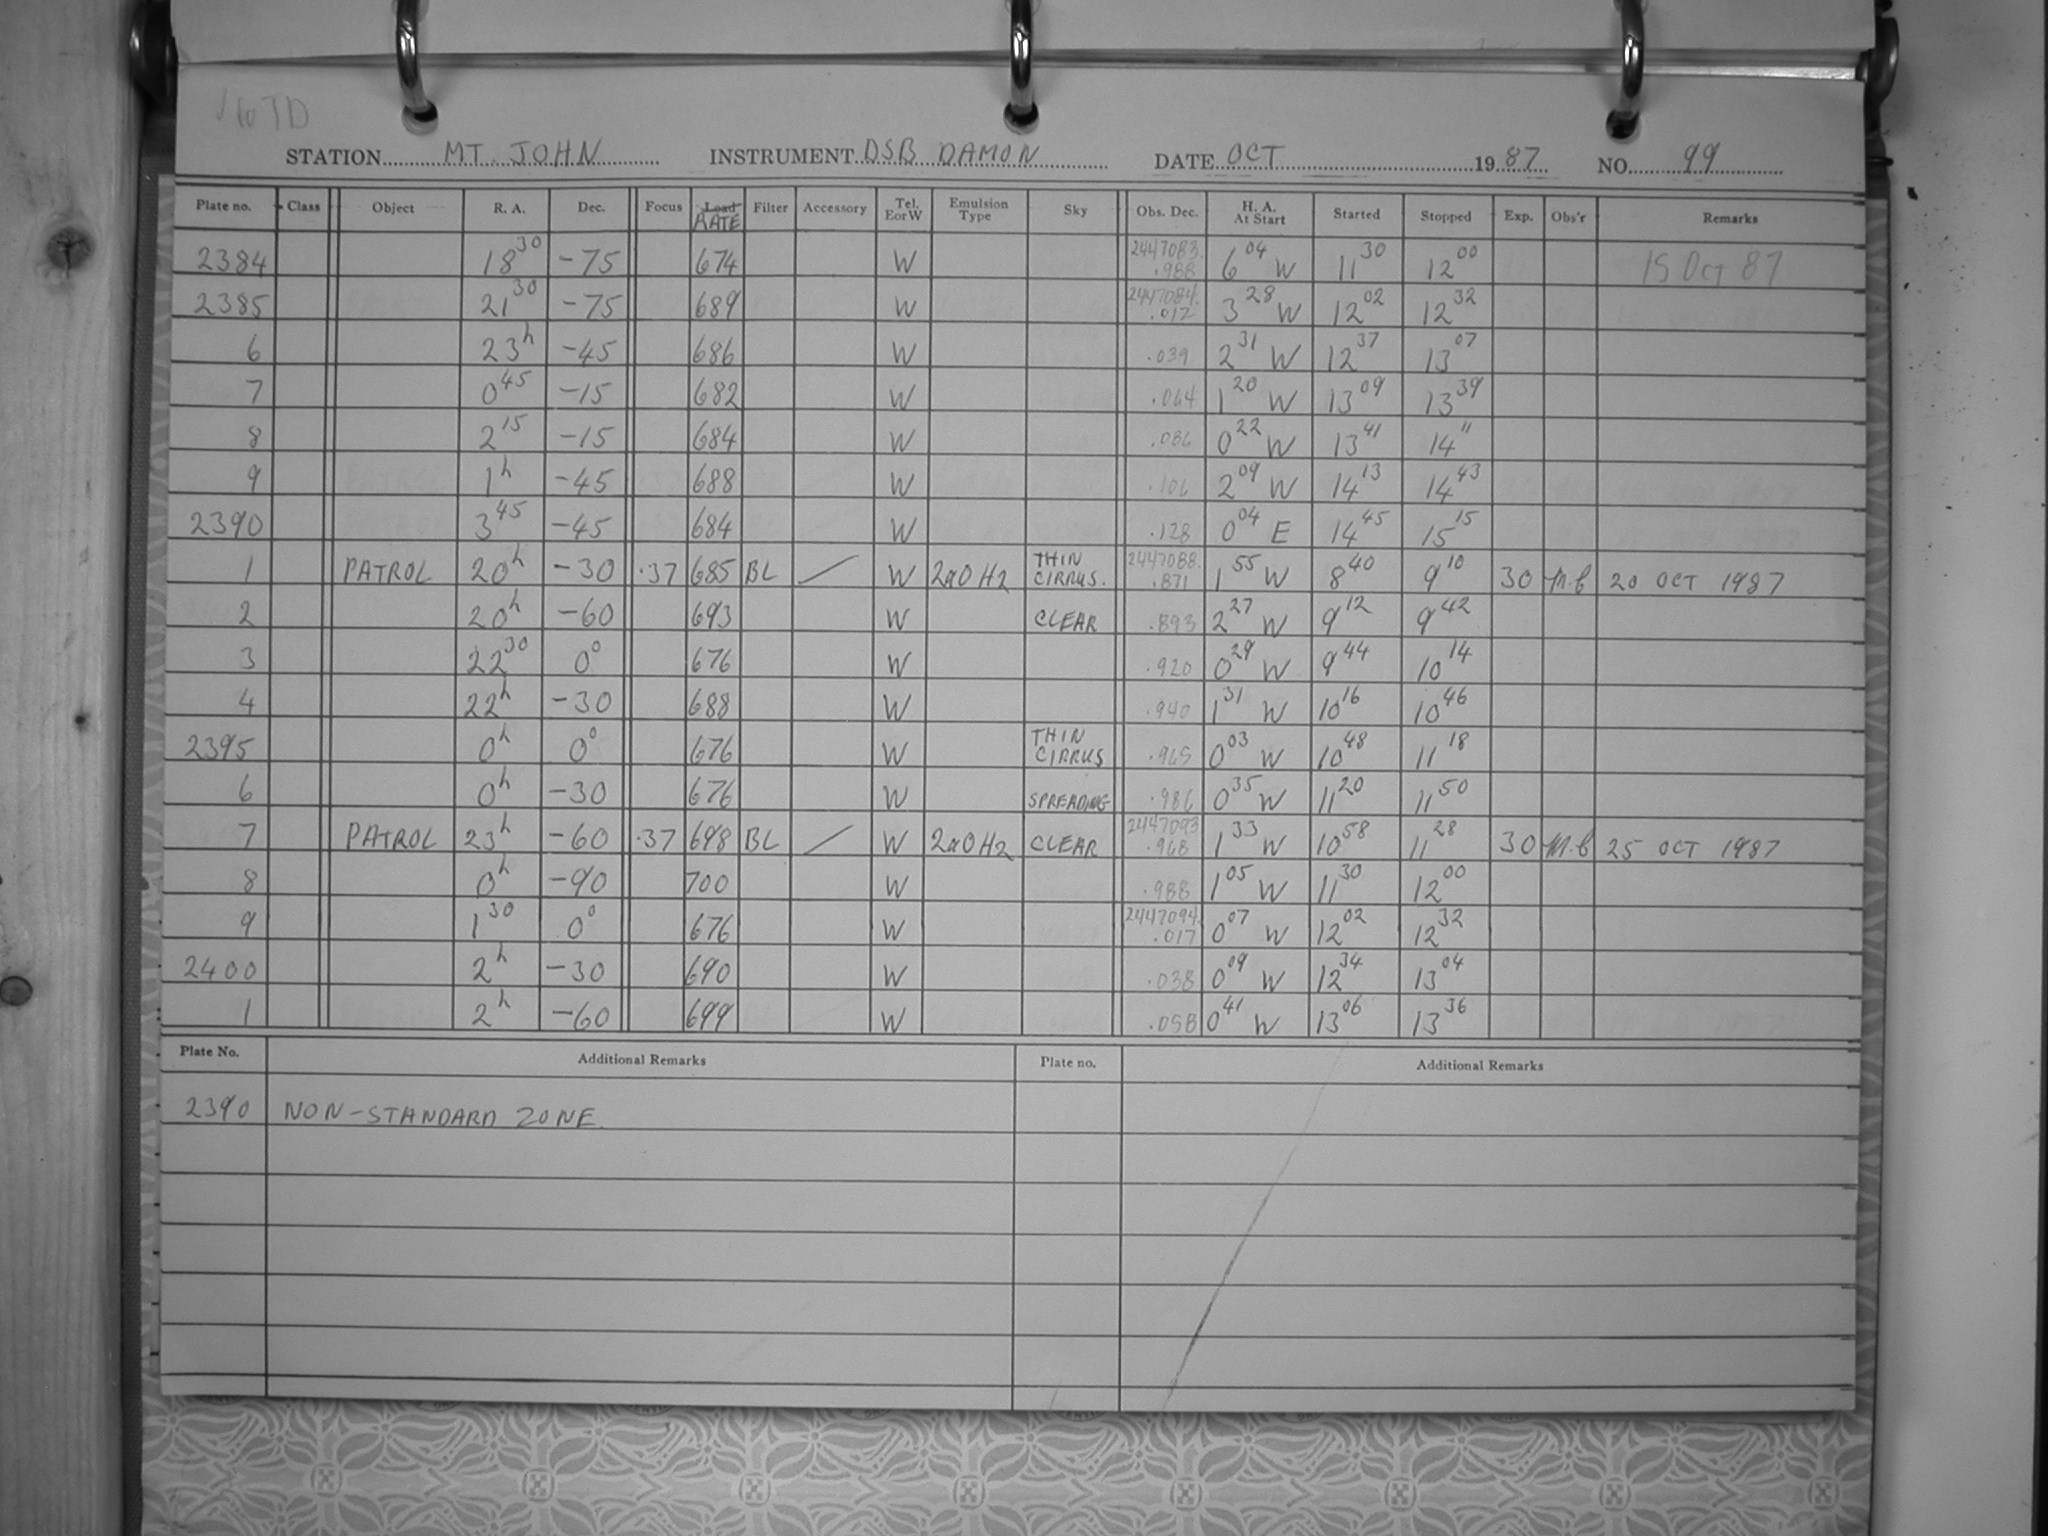 STATION MT. JOHN INSTRUMENT DSB DAMON DATE OCT 1987 NO. 99
Plate no. Class Object R. A. Dec. Focus Load RATE Filter Accessory Tel. E or W Emulsion Type Sky Obs. Dec. H. A. At Start Started Stopped Exp. Obs'r Remarks
2384 18 30 -75 674 W 2447083. .988 6 04 W 11 30 12 00 15 Oct 87
2385 21 30 -75 689 W 2447084. .012 3 28 W 12 02 12 32
6 23 h -45 686 W .039 2 31 W 12 37 13 07
7 0 45 -15 682 W .064 1 20 W 13 09 13 39
8 2 15 -15 684 W .086 0 22 W 13 41 14 11
9 1 h -45 688 W .106 2 09 W 14 13 14 43
2390 3 45 -45 684 W .128 0 04 E 14 45 15 15
1 PATROL 20 h -30 .37 685 BL / W 2aO H2 THIN CIRRUS. 2447088. .871 1 55 W 8 40 9 10 30 M.C 20 OCT 1987
2 20 h -60 693 W CLEAR .893 2 27 W 9 12 9 42
3 22 30 0° 676 W .920 0 29 W 9 44 10 14
4 22 h -30 688 W .940 1 31 W 10 16 10 46
2395 0 h 0° 676 W THIN CIRRUS .965 0 03 W 10 48 11 18
6 0 h -30 676 W SPREADING .986 0 35 W 11 20 11 50
7 PATROL 23 h -60 .37 698 BL / W 2aO H2 CLEAR 2447093 .968 1 33 W 10 58 11 28 30 M.C 25 OCT 1987
8 0 h -90 700 W .988 1 05 W 11 30 12 00
9 1 30 0° 676 W 2447094. .017 0 07 W 12 02 12 32
2400 2 h -30 690 W .038 0 09 W 12 34 13 04
1 2 h -60 699 W .058 0 41 W 13 06 13 36
Plate No. Additional Remarks Plate no. Additional Remarks
2390 NON-STANDARD ZONE.